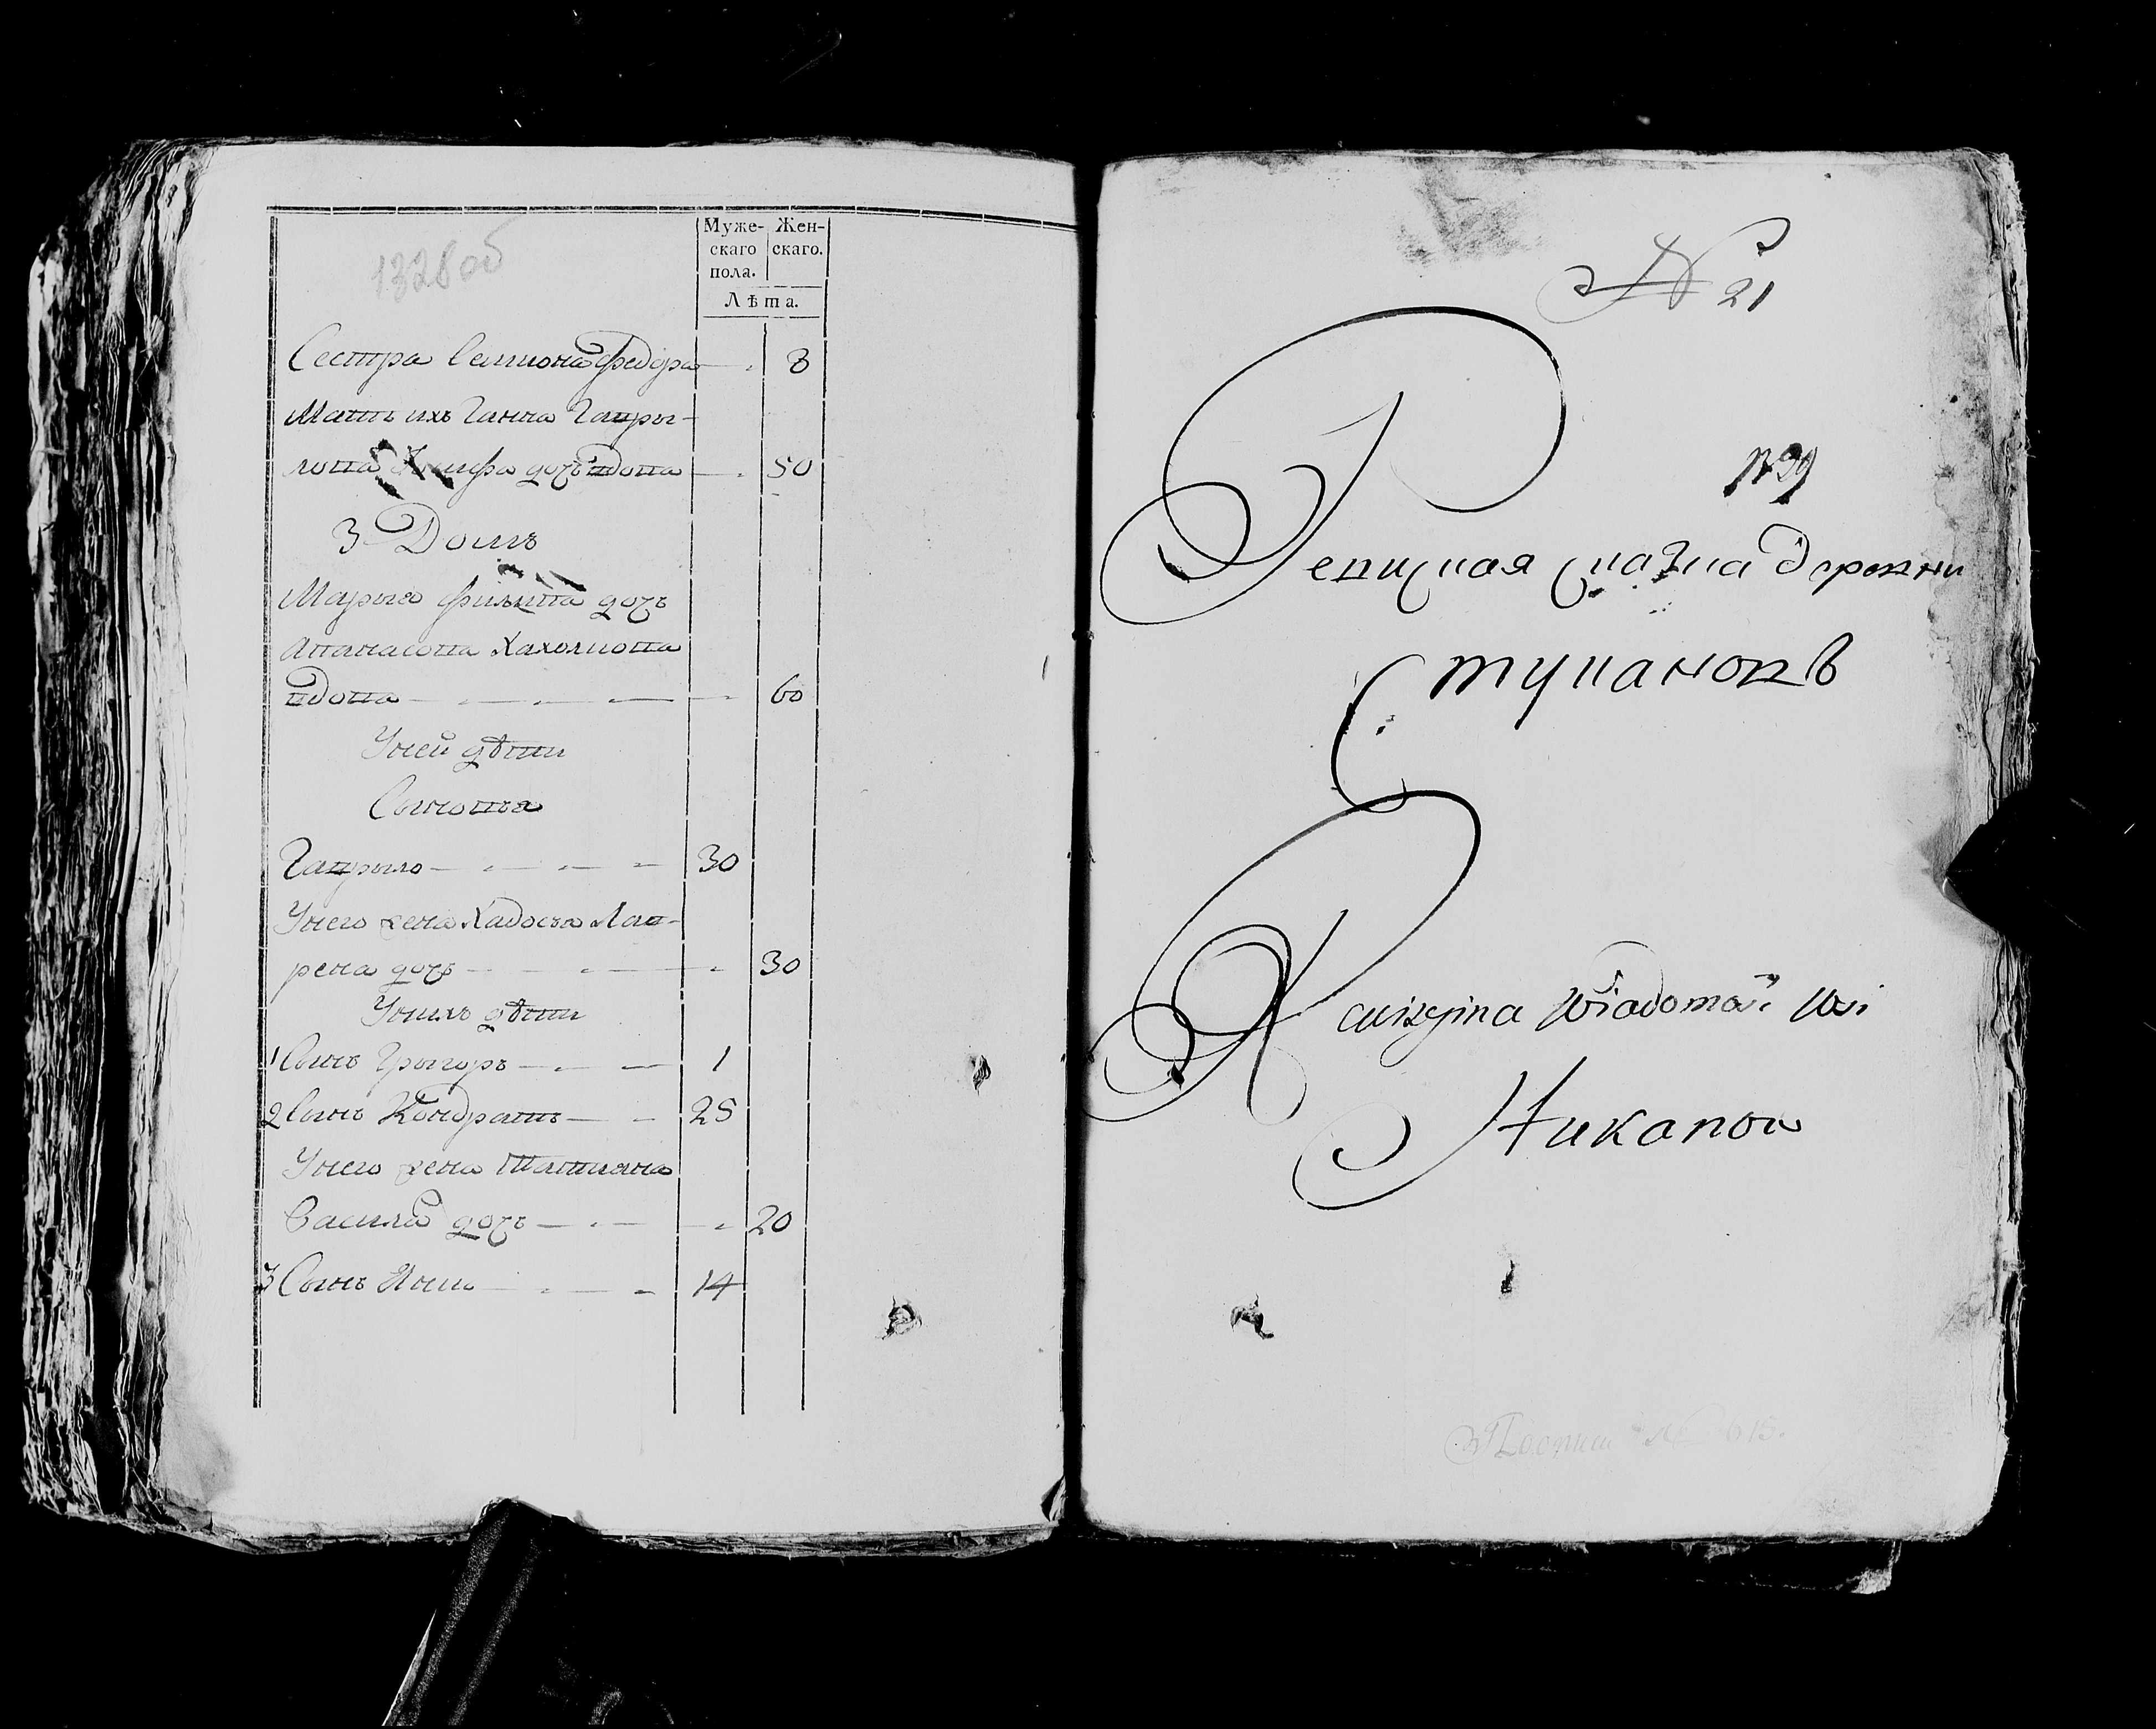 1328об
Муже-
скаго
пола.
Жен-
скаго.
Лѣта.
Сестра Самиона Федора 8
Мать ихъ Ганна Гаври-
лова дочь вдова 50
3 Домъ
Марья Филипа дочъ
Апанасова Хахолкова
вдова 60
Уней дѣти
Сыновья
Гаврыло 30
Унего жена Хадосья Лав-
рена дочъ 30
Унихъ дѣти
1 Сынъ Грыгоръ 1
2 Сынъ Кондратъ 25
Унего жена Татияна
Василя дочъ 20
3 Сынъ 14
№ 21
№ 39
Ревизкая сказка деревни
Ступаковъ
wiadomość wsi